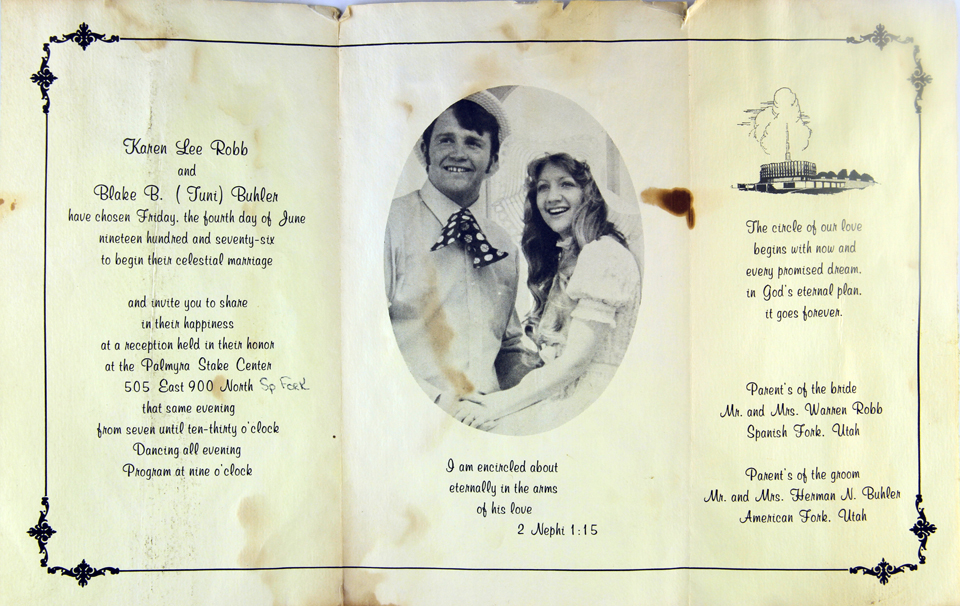 Karen Lee Robb
and
Blake B. ( Tuni) Buhler
have chosen Friday, the fourth day of June
nineteen hundred and seventy-six
to begin their celestial marriage
and invite you to share
in their happiness
at a reception held in their honor
at the Palmyra Stake Center
505 East 900 North Sp Fork
that same evening
from seven until ten-thirty o'clock
Dancing all evening
Program at nine o'clock
I am encircled about
eternally in the arms
of his love
2 Nephi 1:15
The circle of our love
begins with now and
every promised dream.
in God's eternal plan.
it goes forever.
Parent's of the bride
Mr. and Mrs. Warren Robb
Spanish Fork, Utah
Parent's of the groom
Mr. and Mrs. Herman N. Buhler
American Fork, Utah